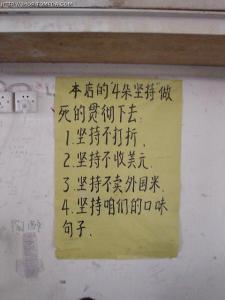 本店的"4条坚持"做
死的贯彻下去.
1.坚持不打折.
2.坚持不收美元.
3.坚持不卖外国米.
4.坚持咱们的口味
句子.